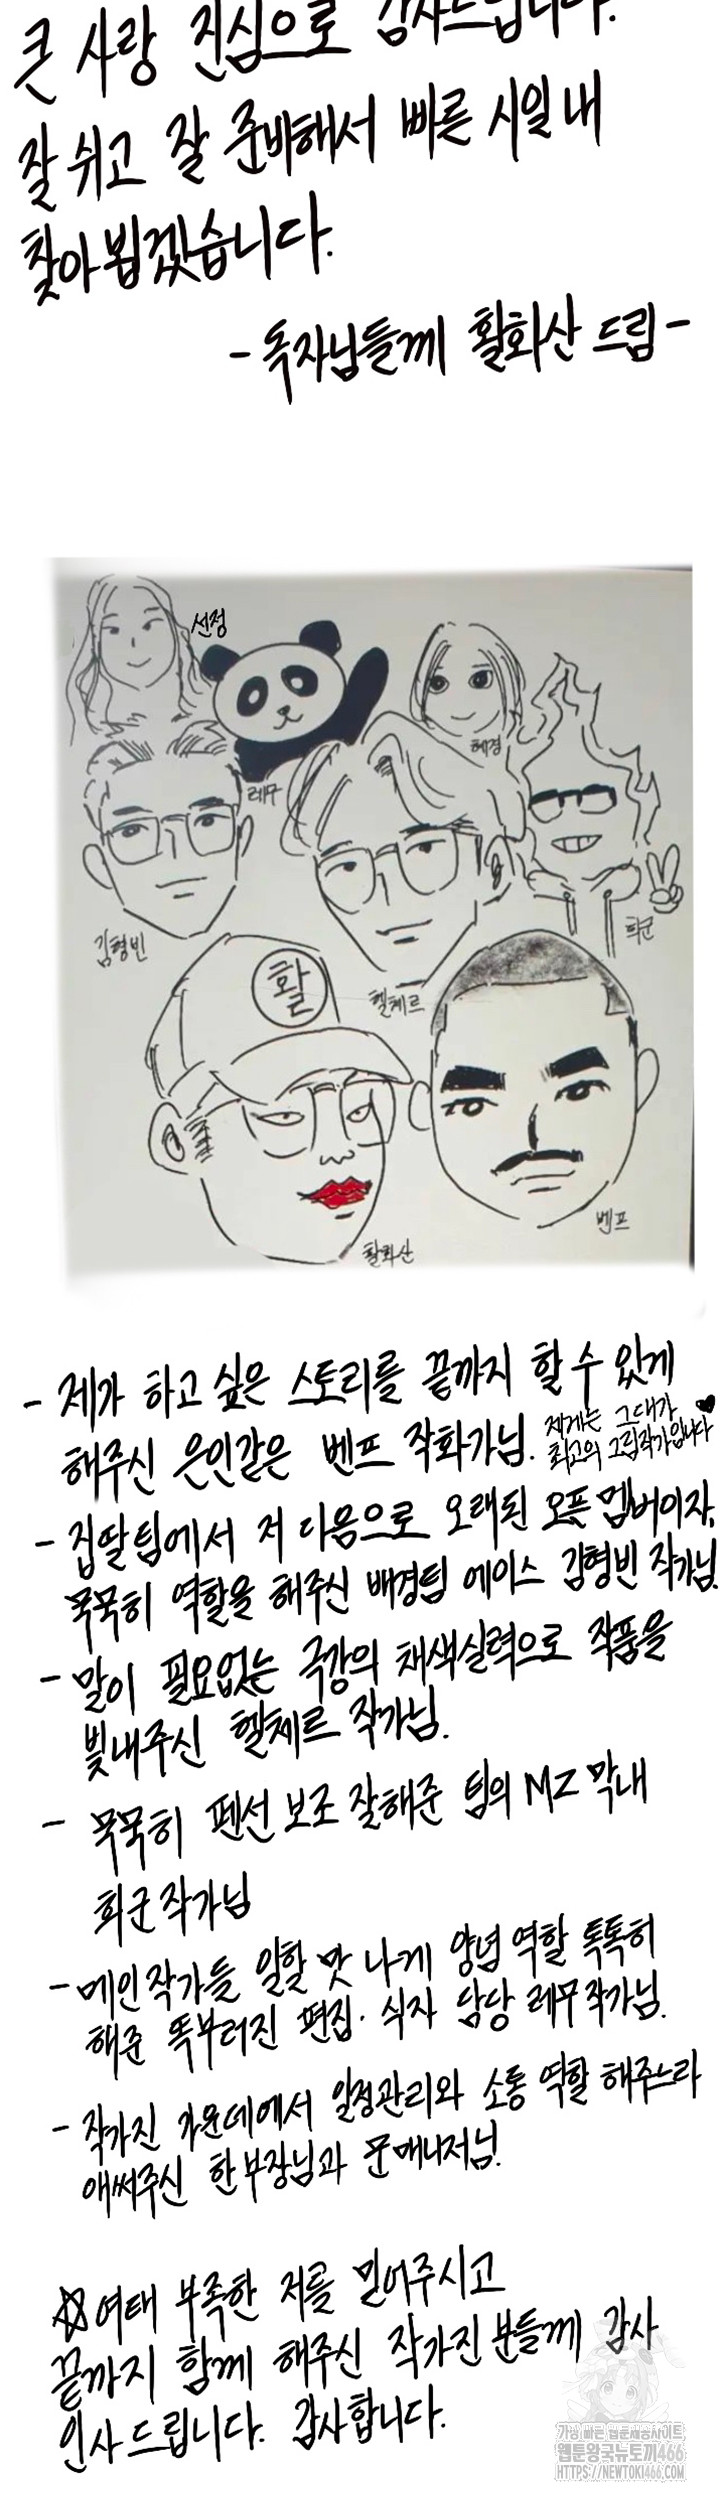 큰 사랑 진심으로 감사드립니다.
잘 쉬고 잘 준비해서 빠른 시일 내
찾아뵙겠습니다.
- 독자님들께 활화산 드림 -
선정
혜경
레무
김형빈
헬체르
희군
활
활화산
벵프
- 제가 하고 싶은 스토리를 끝까지 할 수 있게
해주신 은인같은 벤프 작화가님.
제게는 그대가 ♥
최고의 그림작가입니다
- 집딸팀에서 저 다음으로 오래된 오픈 멤버이자,
묵묵히 역할을 해주신 배경팀 에이스 김형빈 작가님.
- 말이 필요없는 극강의 채색실력으로 작품을
빛내주신 헬체르 작가님.
- 묵묵히 펜선 보조 잘해준 팀의 MZ 막내
희군 작가님
- 메인작가들 일할 맛 나게 양념 역할 톡톡히
해준 똑부러진 편집·식자 담당 레무 작가님.
- 작가진 가운데에서 일정관리와 소통 역할 해주느라
애써주신 한부장님과 문매니저님.
☆ 여태 부족한 저를 믿어주시고
끝까지 함께 해주신 작가진분들께 감사
인사드립니다. 감사합니다.
가장 빠른 웹툰제공사이트
웹툰왕국뉴토끼466
HTTPS://NEWTOKI466.COM